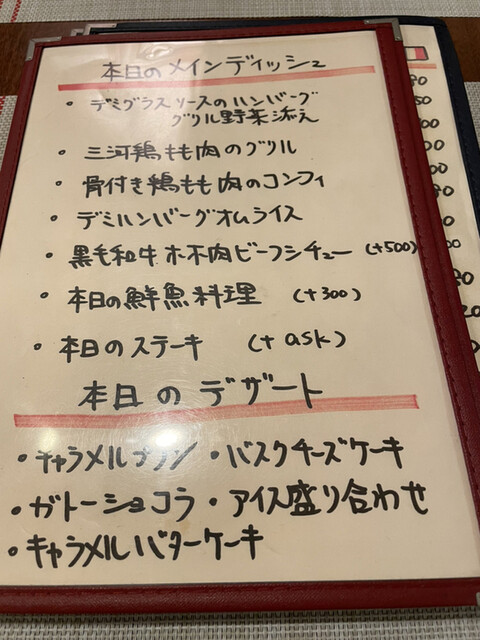 本日のメインディッシュ
・デミグラスソースのハンバーグ
グリル野菜添え
・三河鶏もも肉のグリル
・骨付き鶏もも肉のコンフィ
・デミハンバーグオムライス
・黒毛和牛ホホ肉ビーフシチュー (+500)
・本日の鮮魚料理 (+300)
・本日のステーキ (+ask)
本日のデザート
・キャラメルプリン ・バスクチーズケーキ
・ガトーショコラ ・アイス盛り合わせ
・キャラメルバターケーキ